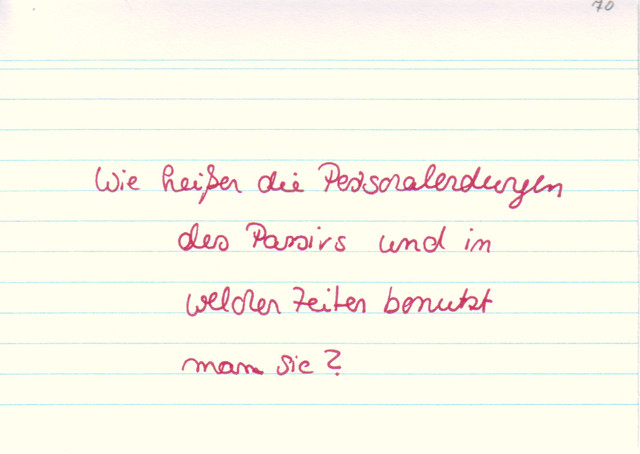 70
Wie heißen die Personalendungen
des Passivs und in
welchen Zeiten benutzt
man sie?